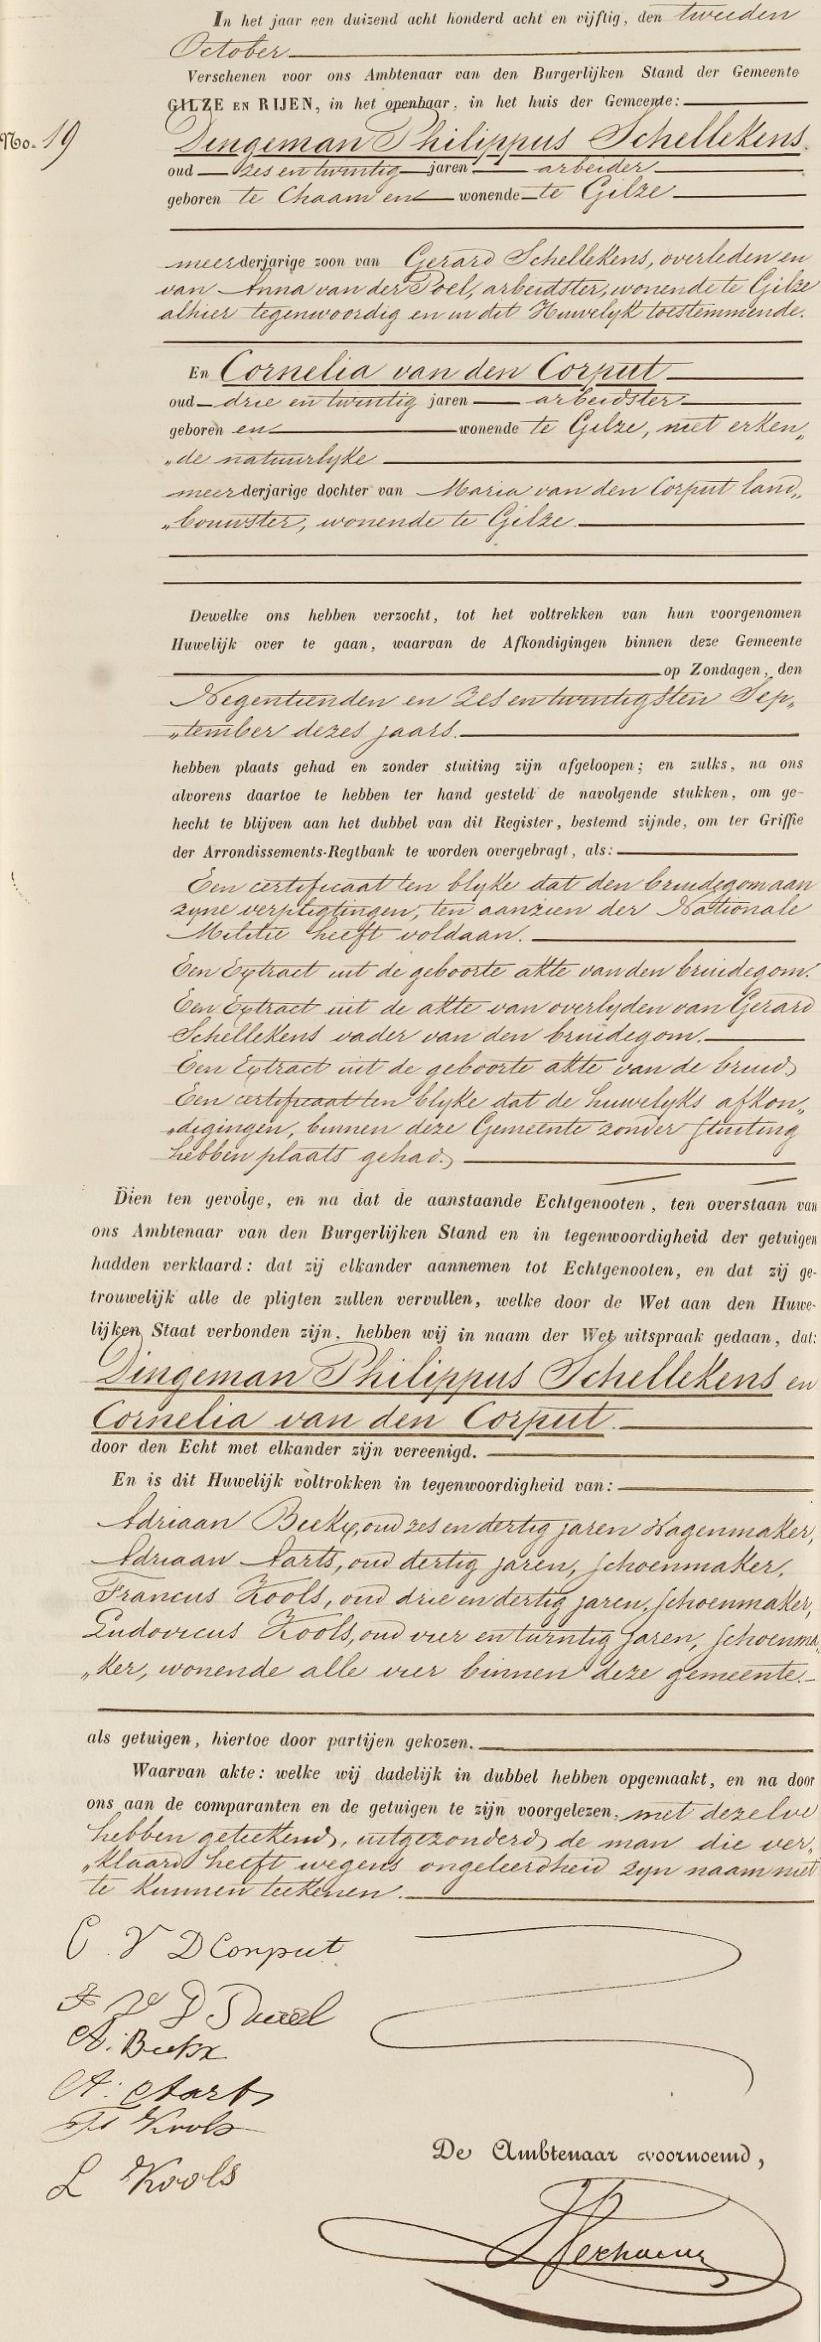 In het jaar een duizend acht honderd acht en vijftig, den tweeden
October
Verschenen voor ons Ambtenaar van den Burgerlijken Stand der Gemeente
GILZE EN RIJEN, in het openbaar, in het huis der Gemeente:
No. 19
Dingeman Philippus Schellekens.
oud zes en twintig jaren arbeider
geboren te Chaam en wonende te Gilze
meerderjarige zoon van Gerard Schellekens, overleden en
van Anna van der Poel, arbeidster, wonende te Gilze
alhier tegenwoordig en in dit Huwelyk toestemmende.
En Cornelia van den Corput
oud drie en twintig jaren arbeidster
geboren en wonende te Gilze, niet erken„
„de natuurlyke
meerderjarige dochter van Maria van den Corput land„
„bouwster, wonende te Gilze.
Dewelke ons hebben verzocht, tot het voltrekken van hun voorgenomen
Huwelijk over te gaan, waarvan de Afkondigingen binnen deze Gemeente
op Zondagen, den
Negentienden en zes en twintigsten Sep„
„tember dezes jaars.
hebben plaats gehad en zonder stuiting zijn afgeloopen; en zulks, na ons
alvorens daartoe te hebben ter hand gesteld de navolgende stukken, om ge-
hecht te blijven aan het dubbel van dit Register, bestemd zijnde, om ter Griffie
der Arrondissements-Regtbank te worden overgebragt, als:
Een certificaat ten blyke dat den bruidegom aan
zyne verpligtingen, ten aanzien der Nationale
Militie heeft voldaan.
Een Extract uit de geboorte akte van den bruidegom.
Een Extract uit de akte van overlyden van Gerard
Schellekens vader van den bruidegom.
Een Extract uit de geboorte akte van de bruid
Een certificaat ten blyke dat de huwelyks afkon„
„digingen, binnen deze Gemeente zonder stuiting
hebben plaats gehad.
Dien ten gevolge, en na dat de aanstaande Echtgenooten, ten overstaan van
ons Ambtenaar van den Burgerlijken Stand en in tegenwoordigheid der getuigen
hadden verklaard: dat zij elkander aannemen tot Echtgenooten, en dat zij ge-
trouwelijk alle de pligten zullen vervullen, welke door de Wet aan den Huwe-
lijken Staat verbonden zijn, hebben wij in naam der Wet uitspraak gedaan, dat:
Dingeman Philippus Schellekens en
Cornelia van den Corput.
door den Echt met elkander zijn vereenigd.
En is dit Huwelijk voltrokken in tegenwoordigheid van:
Adriaan Beekx, oud zes en dertig jaren Wagenmaker,
Adriaan Aarts, oud dertig jaren, schoenmaker,
Francus Kools, oud drie en dertig jaren, schoenmaker,
Ludovicus Kools, oud vier en twintig jaren, schoenma„
„ker, wonende alle vier binnen deze gemeente.
als getuigen, hiertoe door partijen gekozen.
Waarvan akte: welke wij dadelijk in dubbel hebben opgemaakt, en na door
ons aan de comparanten en de getuigen te zijn voorgelezen, met dezelve
hebben geteekend, uitgezonderd de man die ver„
„klaard heeft wegens ongeleerdheid zyn naam niet
te kunnen teekenen.
C V D Corput
A. Beekx
A. Aarts
Fs Kools
L Kools
De Ambtenaar voornoemd,